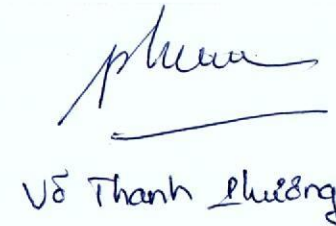 Võ Thanh Phương